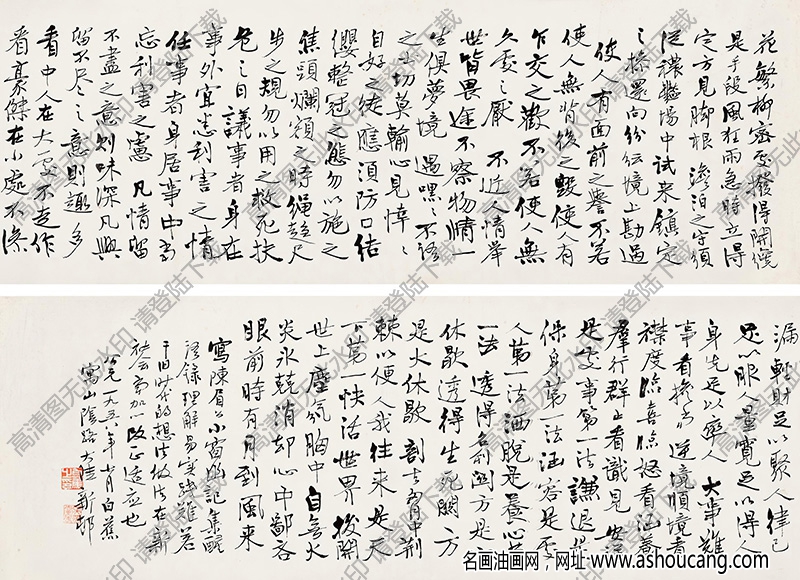 花繁柳密處撥得開纔
是手段風狂雨急時立得
定方見脚根 澹泊之守須
從穠豔場中試來鎮定
之操還向紛紜境上勘過
使人有面前之譽不若
使人無背後之毀使人有
乍交之歡不若使人無
久處之厭 不近人情舉
世皆畏途不察物情一
生俱夢境 遇嘿嘿不語
之士切莫輸心見悻悻
自好之徒應須防口 結
纓整冠之態勿以施之
焦頭爛額之時繩趨尺
步之規勿以用之救死扶
危之日 議事者身在
事外宜悉利害之情
任事者身居事中當
忘利害之慮 凡情留
不盡之意則味深凡興
留不尽之意則趣多
看中人在大處不走作
看豪傑在小處不滲
漏 輕財足以聚人律己
足以服人量寬足以得人
身先足以率人 大事難
事看擔當逆境順境看
襟度臨喜臨怒看涵養
羣行群止看識見 安詳
是處事第一法謙退是
保身第一法涵容是處
人第一法洒脱是養心第
一法 透得名利關方是
休歇透得生死關方
是大休歇 剖去胸中荆
棘以便人我往來是天
下第一快活世界 撥開
世上塵氛胸中自無火
炎冰兢消却心中鄙吝
眼前時有月到風來
寫陳眉公小窗幽記集醒
語錄理解易實踐難若
干旧时代的想法做法在新
社会当加以改正适应也
公元一九五六年 月白蕉
寫山陰路大陸新邨
高清图无此水印 请登陆下载
名画油画网，网址:www.ashoucang.com